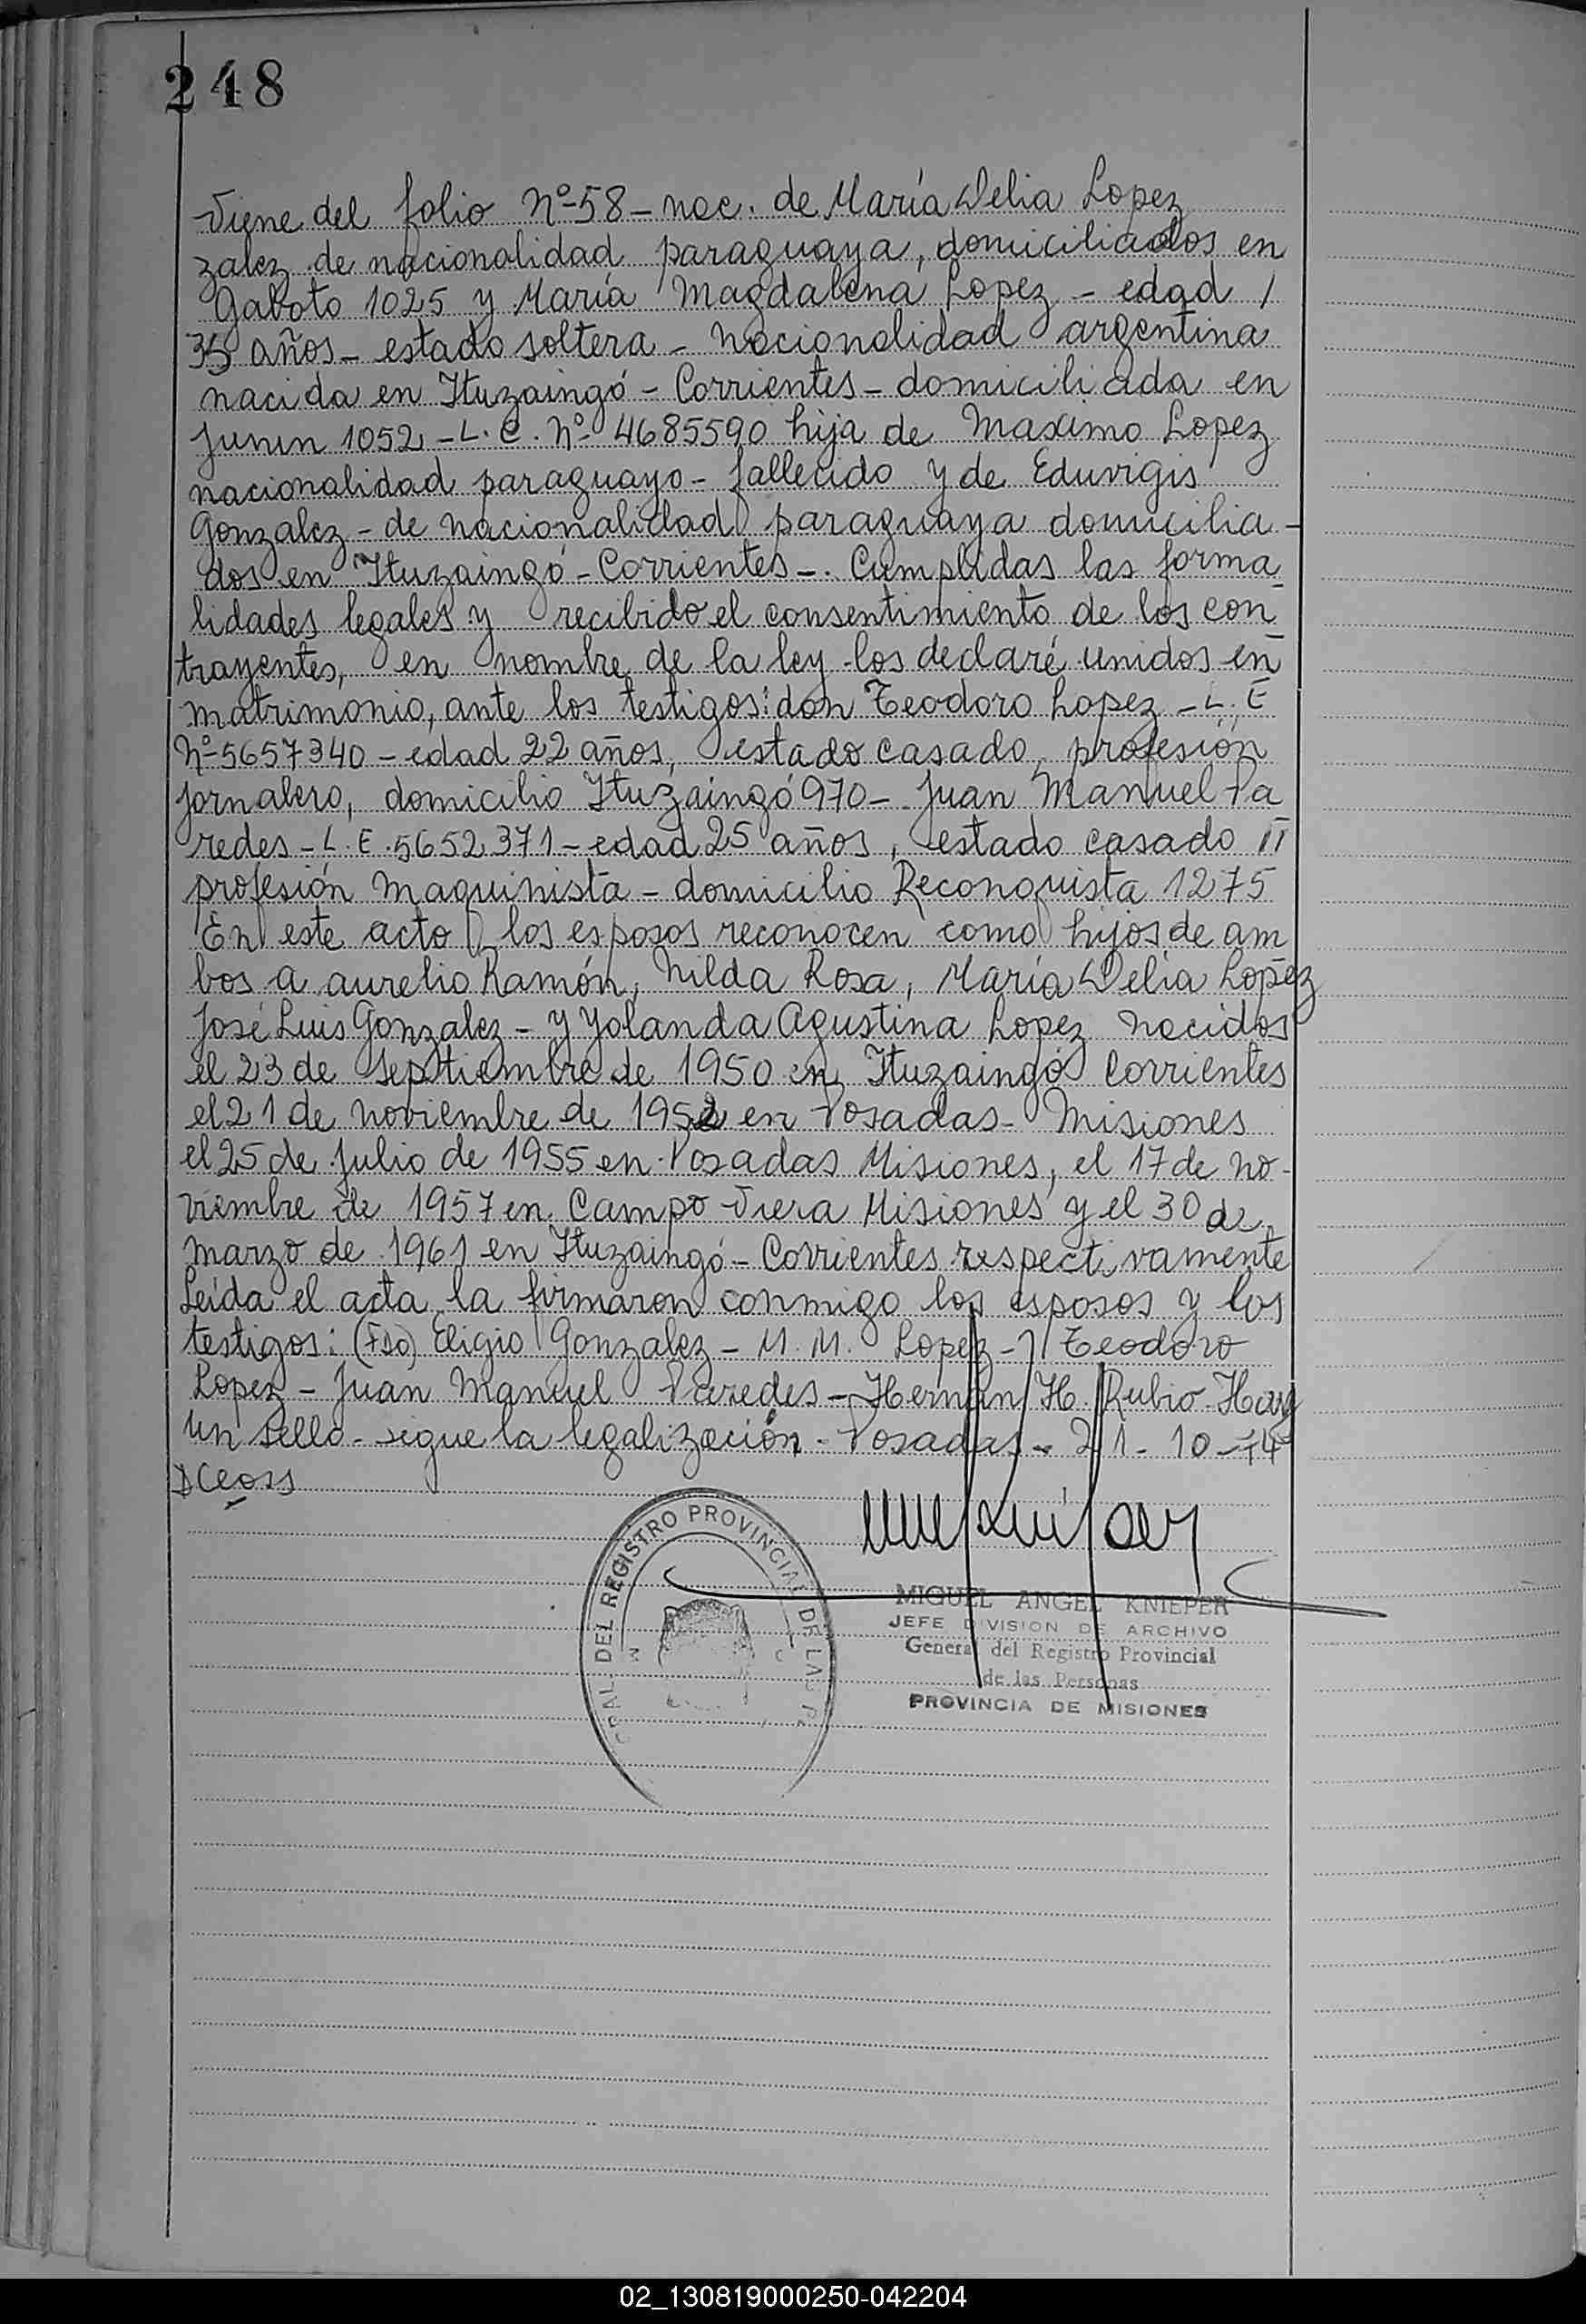 248
Viene del folio Nº-58 - nac. de María Delia Lopez
zalez de nacionalidad paraguaya, domiciliados en
Gaboto 1025 y María Magdalena Lopez - edad /
35 años - estado soltera - nacionalidad argentina
nacida en Ituzaingó - Corrientes - domiciliada en
Junin 1052 - L. C. Nº- 4685590 hija de Maximo Lopez
nacionalidad paraguayo - fallecido y de Eduvigis
Gonzalez - de nacionalidad paraguaya domicilia-
dos en Ituzaingó - Corrientes -. Cumplidas las forma
lidades legales y recibido el consentimiento de los con
trayentes, en nombre de la ley los declaré unidos en
matrimonio, ante los testigos: don Teodoro Lopez - L. E
Nº-5657340 - edad 22 años, estado casado, profesión
jornalero, domicilio Ituzaingó 970 - Juan Manuel Pa
redes - L. E. 5652371 - edad 25 años, estado casado //
profesión maquinista - domicilio Reconquista 1275
En este acto los esposos reconocen como hijos de am
bos a aurelio Ramón, Nilda Rosa, María Delia Lopez
José Luis Gonzalez - y Yolanda Agustina Lopez nacidos
el 23 de septiembre de 1950 en Ituzaingó Corrientes
el 21 de noviembre de 1952 en Posadas - Misiones
el 25 de Julio de 1955 en Posadas Misiones, el 17 de no-
viembre de 1957 en Campo Viera Misiones y el 30 de
marzo de 1961 en Ituzaingó - Corrientes respectivamente
Leída el acta la firmaron conmigo los esposos y los
testigos: (Fdo) Eligio Gonzalez - M. M. Lopez - Teodoro
Lopez - Juan Manuel Paredes - Hernan H. Rubio - Hay
un sello - sigue la legalización - Posadas - 21 - 10 - 74
GRAL. DEL REGISTRO PROVINCIAL DE LAS
MIGUEL ANGEL KNIEPER
JEFE DIVISION DE ARCHIVO
General del Registro Provincial
de las Personas
PROVINCIA DE MISIONES
02_130819000250-042204